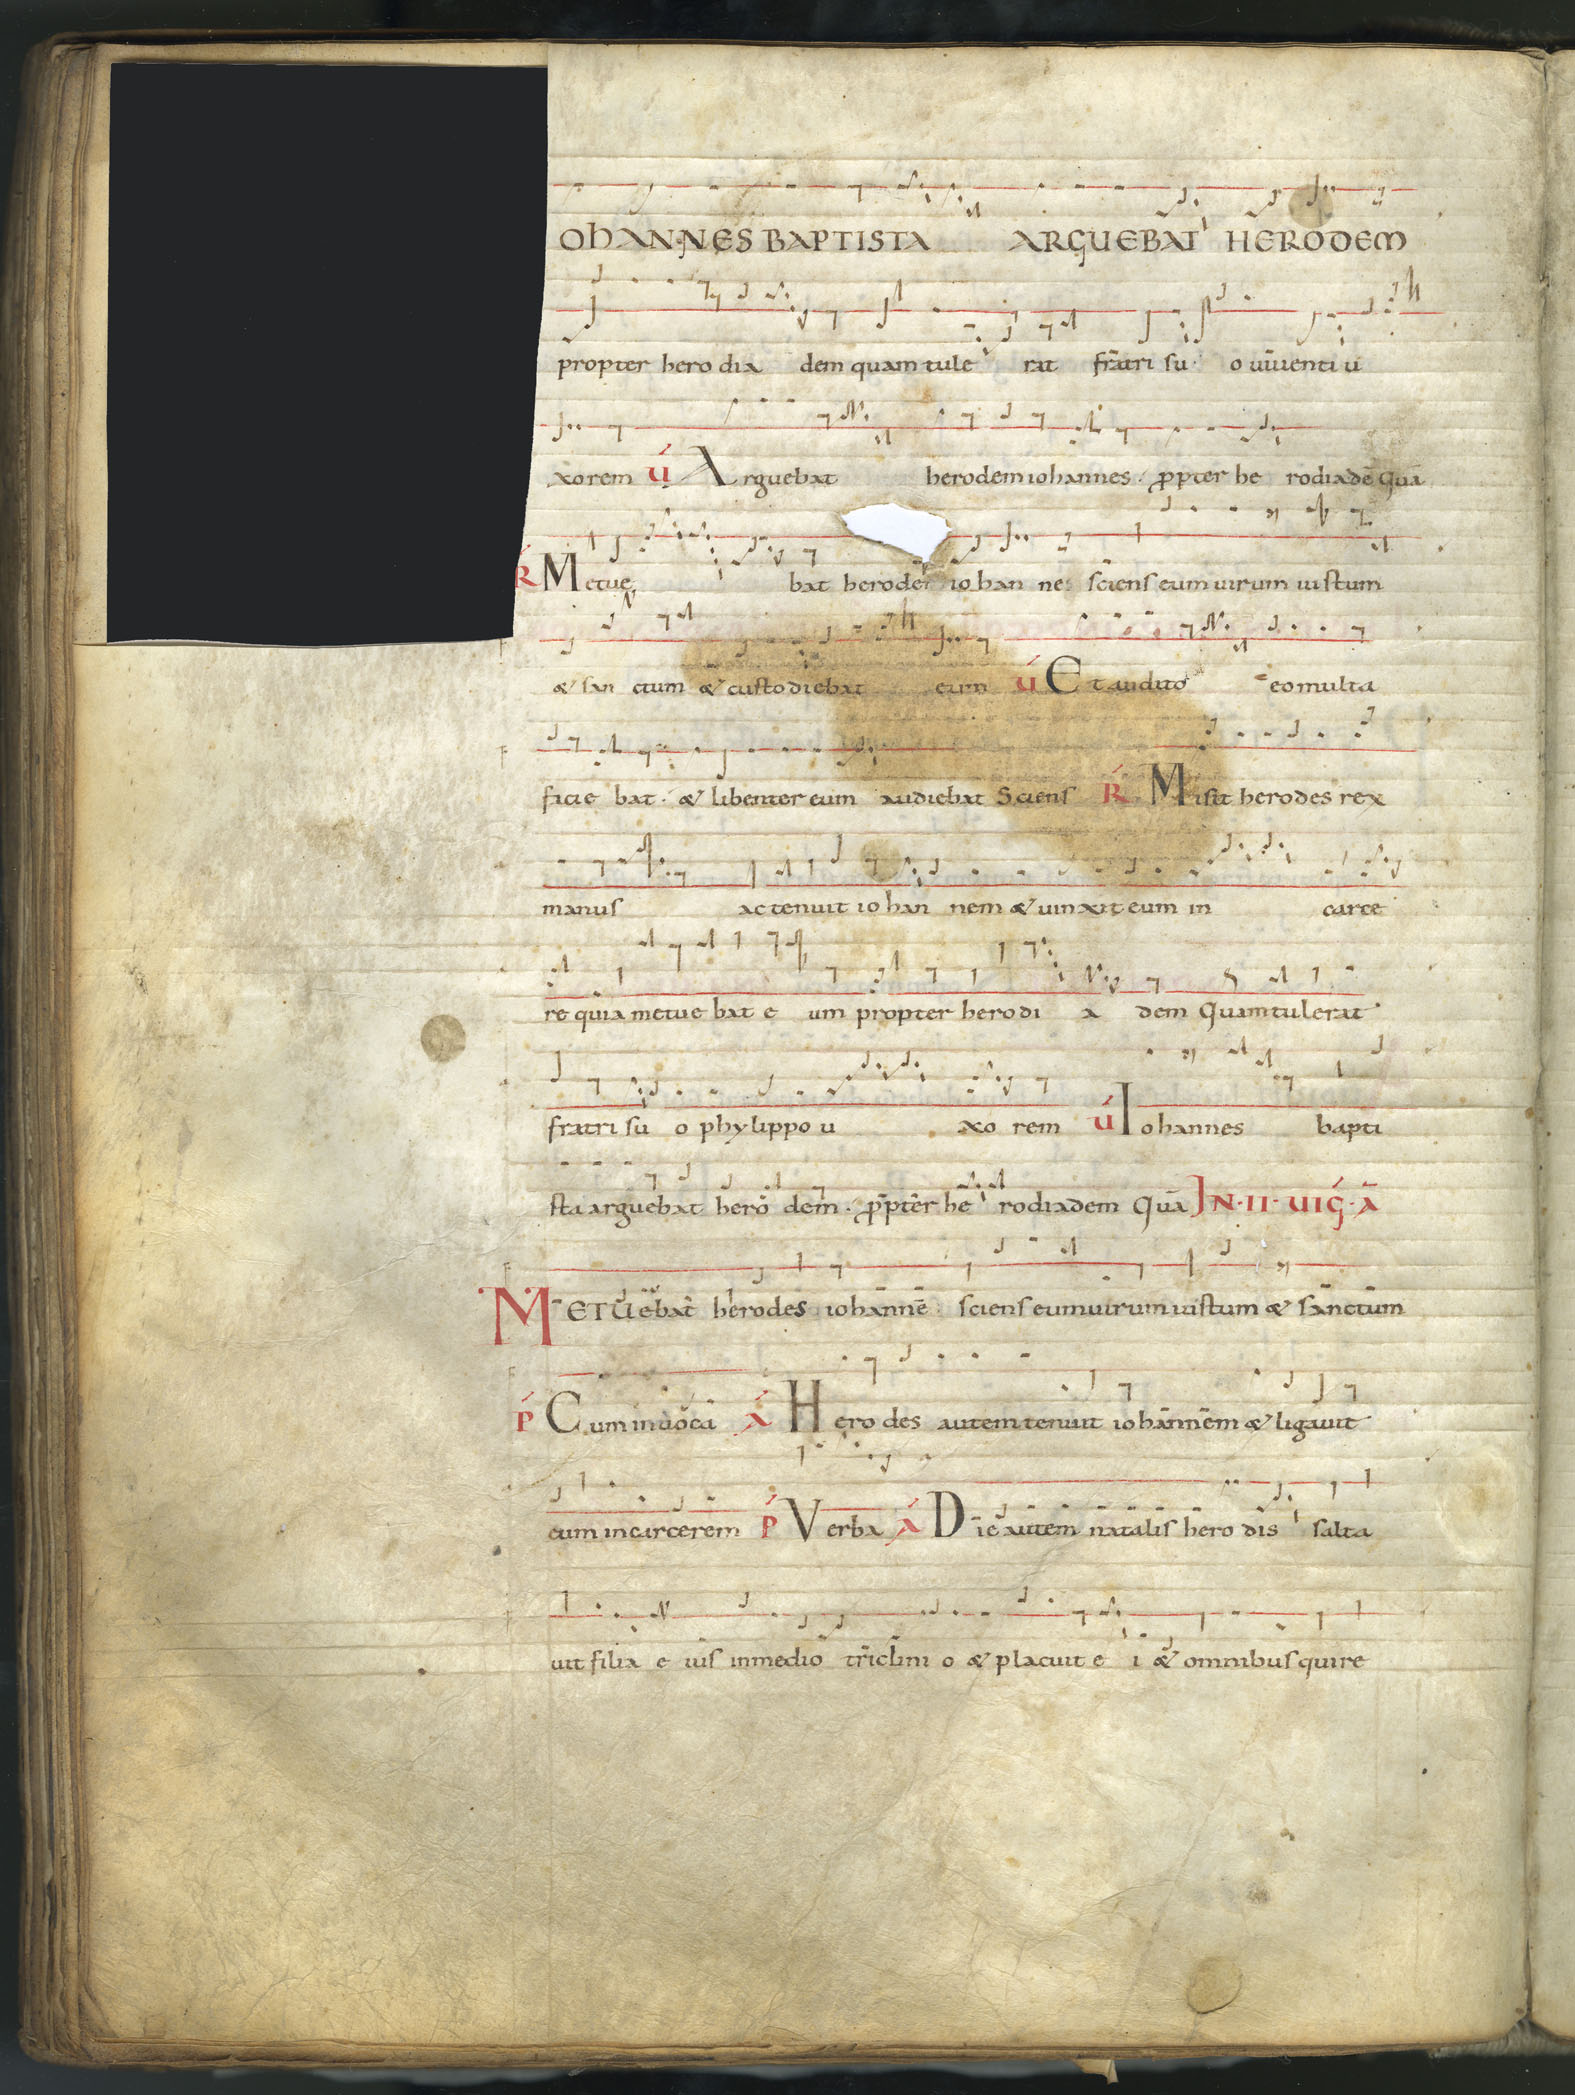 OHANNES BAPTISTA ARGUEBAT HERODEM
propter hero dia dem quam tule rat fratri su o uiuenti u
xorem ú Arguebat herodem iohannes. ꝓpter he rodiadē Quā
Ŕ Metue bat herodes iohan nē sciens eum uirum iustum
& san ctum & custodiebat eum ú Et audito eo multa
facie bat. & libenter eum audiebat Sciens Ŕ Misit herodes rex
manus ac tenuit iohan nem & uinxit eum in carce
re quia metue bat e um propter herodi a dem Quam tulerat
fratri su o phylippo u xo rem ú Iohannes bapti
sta arguebat hero dem. ꝓpter he rodiadem Quā IN·II·UIḠ·Ā
METUebat herodes iohannē sciens eum uirum iustum & sanctum
Ṕ Cum inuocā Á Herodes autem tenuit iohannem & ligauit
eum in carcerem Ṕ Verba Á Die autem natalis hero dis salta
uit filia e ius in medio triclini o & placuit e i & omnibus qui re